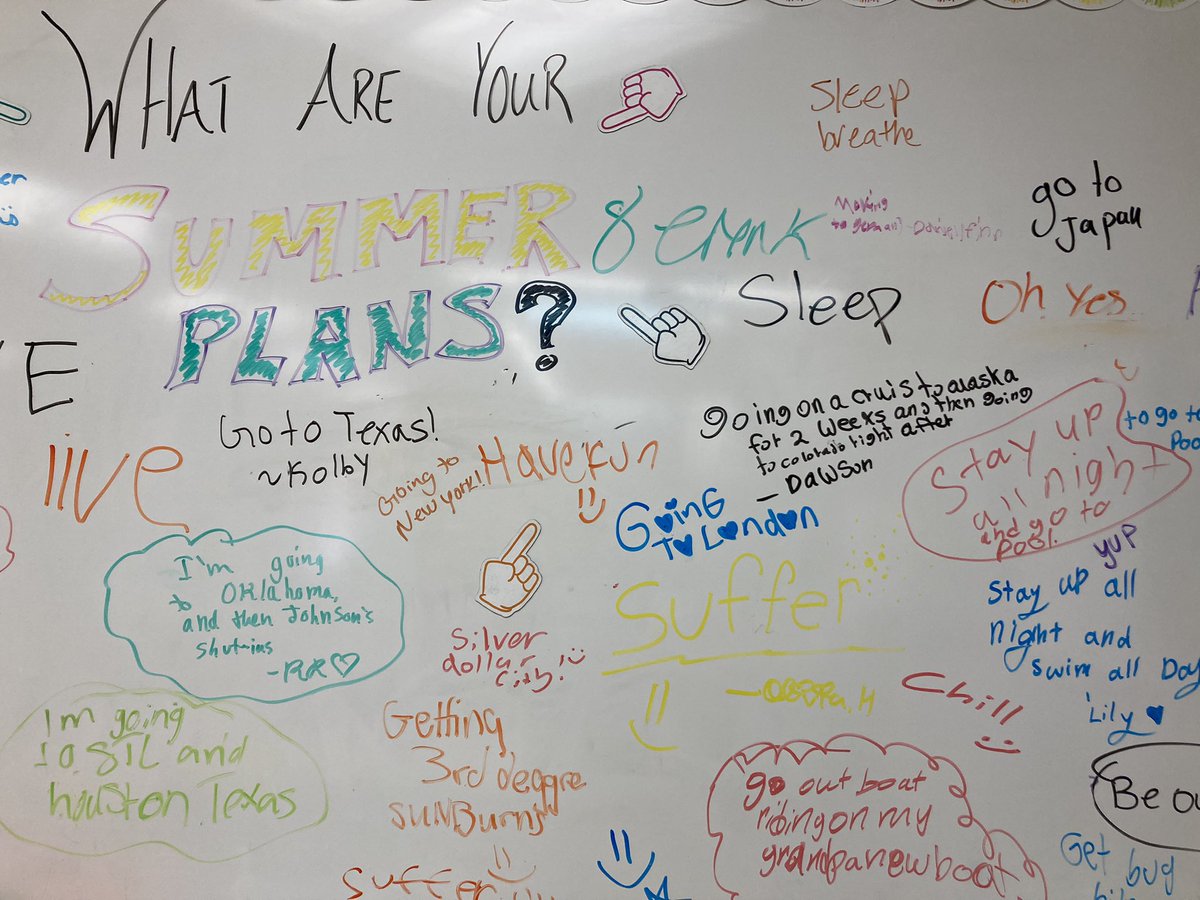 WHAT ARE YOUR
SUMMER
PLANS?
Sleep
breathe
go to
Japan
Sleep
Oh Yes
E
Go to Texas!
~Kolby
live
Going to
New York!
Have fun
going on a cruis to alaska
for 2 weeks and then going
to colorado right after
- DAWSON
Going
To London
Stay up
all night
and go to
Pool
to go to
yup
I'm going
to Oklahoma,
and then Johnson's
shut-ins
-RR♡
Silver
dollar
city!
Suffer
Stay up all
night and
swim all Day
Lily ♥
Chill
I'm going
to STL and
houston Texas
Getting
3rd deggre
sunBurns
go out boat
riding on my
grandpa new boat
Be ou
Get bug
Suffer